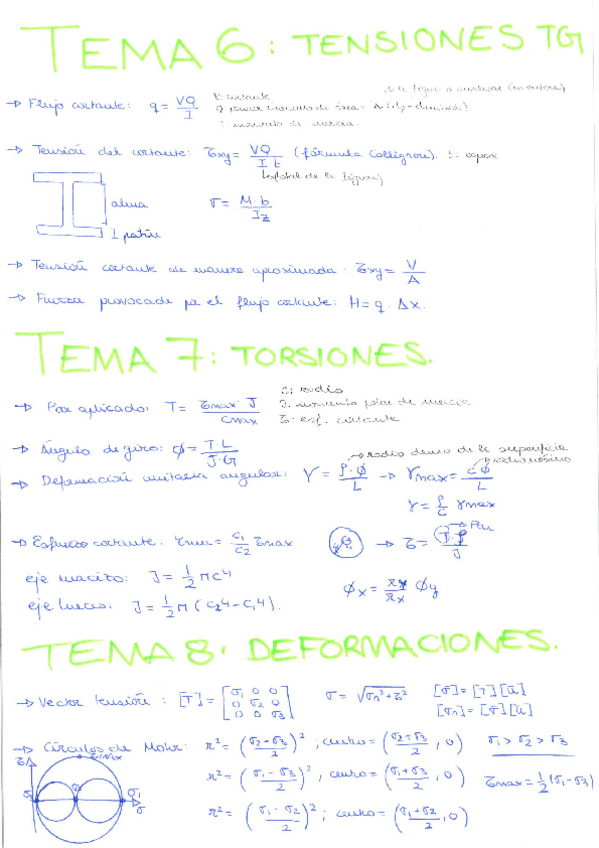 TEMA 6: TENSIONES TG
→ Flujo cortante: q = VQ/I
V: cortante
Q primer momento de área = A
I: momento de inercia.
→ Tensión del cortante: τxy = VQ/It (fórmula Collignon).
(total de la figura)
alma
I patín
σ = M·b/Iz
→ Tensión cortante de manera aproximada: τxy = V/A
→ Fuerza provocada por el flujo cortante: H = q·Δx.
TEMA 7: TORSIONES.
→ Par aplicado: T = τmax·J/Cmax
C: radio
J: momento polar de inercia
τ: esf. cortante
→ Ángulo de giro: φ = T·L/J·G
→ Deformación unitaria angular: γ = ρ·φ/L → γmax = cφ/L
→ radio dentro de la superficie
→ radio máximo
γ = ρ/c γmax
→ Esfuerzo cortante: τmin = C1/C2 τmax
→ τ = T·ρ/J
→ Par
eje macizo: J = 1/2 πc⁴
eje hueco: J = 1/2 π(C2⁴ - C1⁴).
φx = ry/rx φy
TEMA 8: DEFORMACIONES.
→ Vector tensión: [T] = [σ1 0 0; 0 σ2 0; 0 0 σ3]
σ = √σn²+τ²
[σ] = [T][u]
[σn] = [σ][u]
→ Círculos de Mohr: r² = (σ2-σ3/2)²; centro = (σ2+σ3/2, 0)
σ1 > σ2 > σ3
r² = (σ1-σ3/2)²; centro = (σ1+σ3/2, 0)
τmax = 1/2(σ1-σ3)
r² = (σ1-σ2/2)²; centro = (σ1+σ2/2, 0)
τ
τmax
σ1
σ